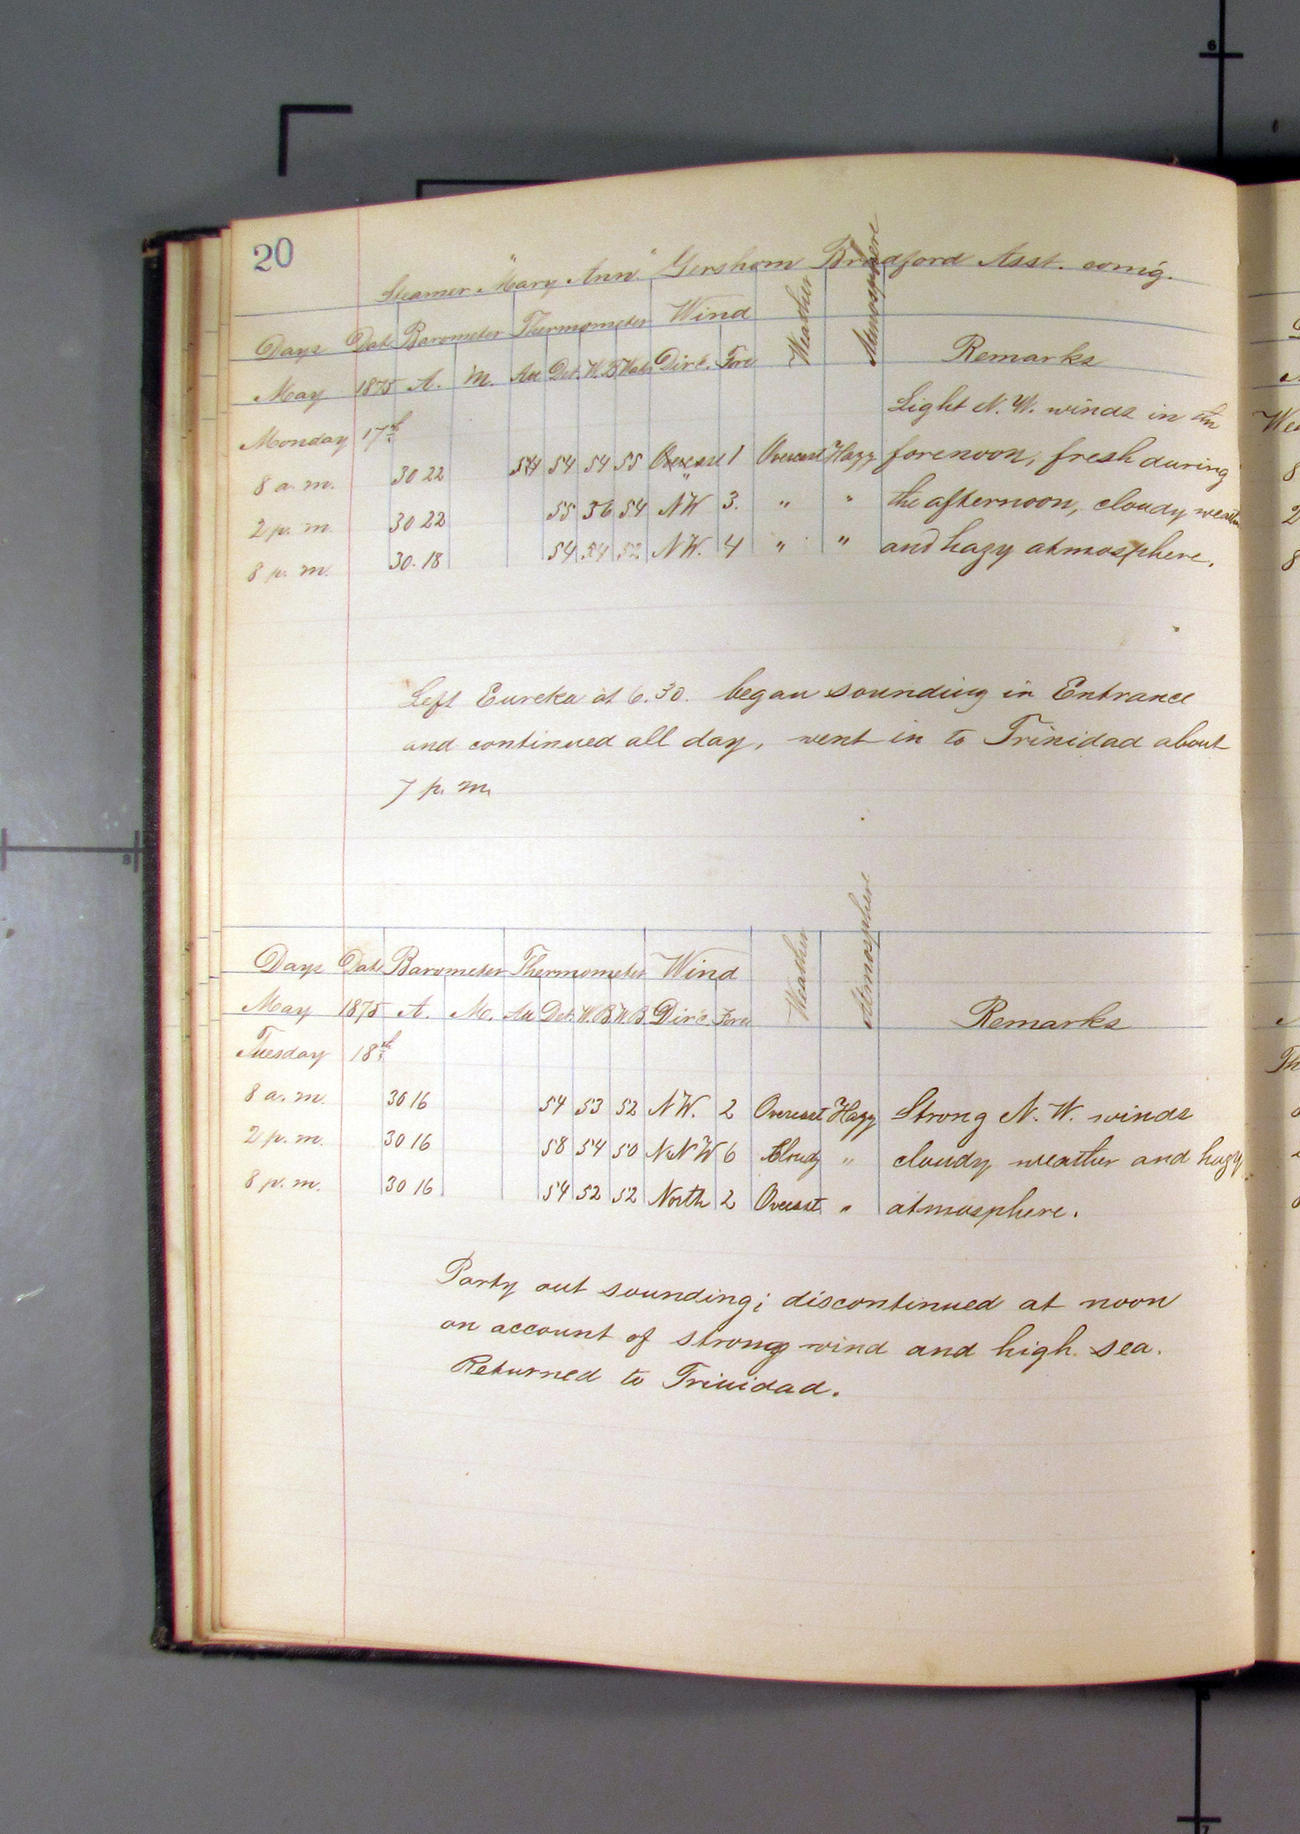 20
Steamer "Mary Ann" Gershom Bradford Asst. com'g.
Days Date Barometer Thermometer Wind Weather Atmosphere Remarks
May 1875 A. M. Att Det. W.B Wat. Dir'c. Force
Monday 17th Light N. W. winds in the
8 a. m. 30 22 54 54 54 55 1 Overcast Hazy forenoon, fresh during
2 p. m. 30 22 55 56 54 NW 3. " " the afternoon, cloudy weather
8 p. m. 30.18 54 54 52 NW. 4 " " and hazy atmosphere.
Left Eureka at 6.30. began sounding in Entrance
and continued all day, went in to Trinidad about
7 p. m.
Days Date Barometer Thermometer Wind Weather Atmosphere Remarks
May 1875 A. M. Att Det. W.B W.B. Dir'c. Force
Tuesday 18th
8 a. m. 30 16 54 53 52 NW. 2 Overcast Hazy Strong N. W. winds
2 p. m. 30 16 58 54 50 NNW 6 Cloudy " cloudy weather and hazy
8 p. m. 30 16 54 52 52 North 2 Overcast " atmosphere.
Party out sounding; discontinued at noon
on account of strong wind and high sea.
Returned to Trinidad.